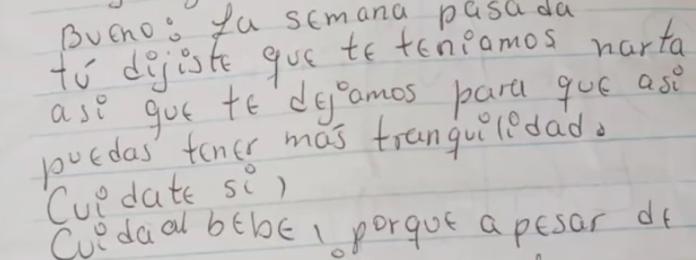 Bueno: La semana pasada
tú dijiste que te teniamos harta
asi que te dejamos para que asi
puedas tener más tranquilidad.
Cuidate si,
Cuida al bebe, porque a pesar de